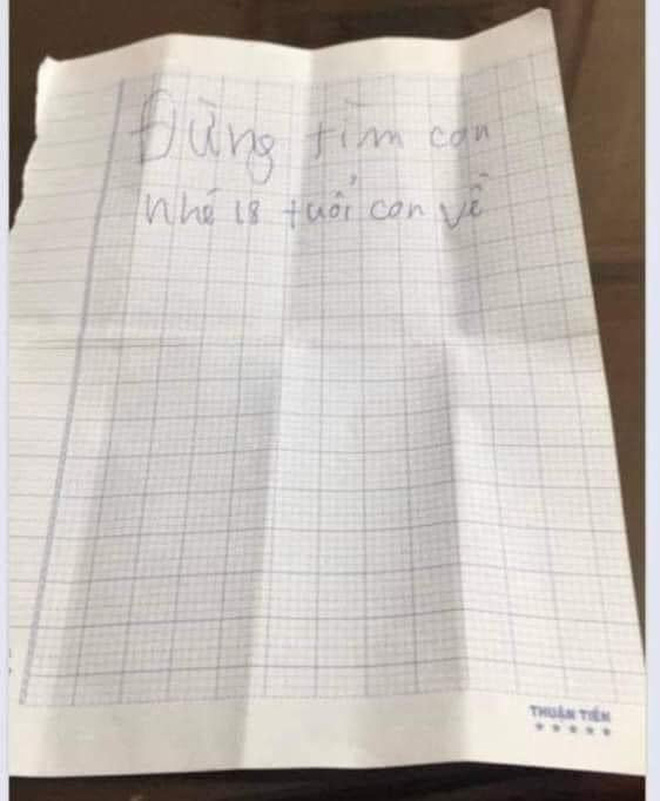 Đừng tìm con
nhé 18 tuổi con về
THUẬN TIẾN